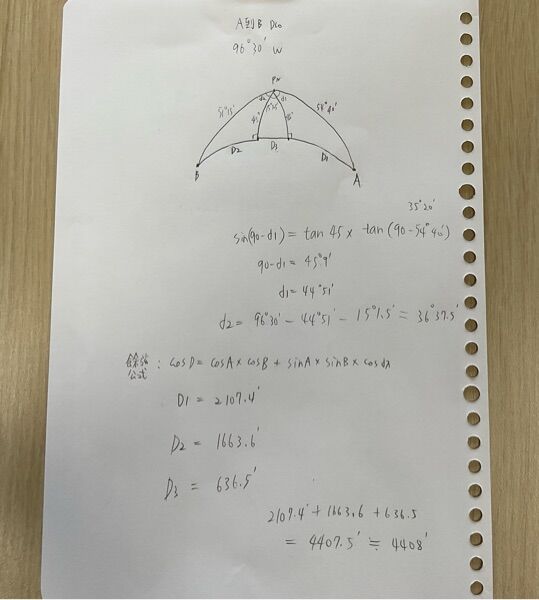 A到B DLo
96°30' W
PN
d2
d1
51°15'
54°40'
45°
45°
D2
D3
D1
B
A
35°20'
sin(90-d1) = tan 45 × tan (90-54°40')
90-d1 = 45°9'
d1 = 44°51'
d2 = 96°30' - 44°51' - 15°1.5' = 36°37.5'
餘弦公式 : cos D = cosA × cosB + sinA × sinB × cos dλ
D1 = 2107.4'
D2 = 1663.6'
D3 = 636.5'
2107.4' + 1663.6 + 636.5
= 4407.5' ≒ 4408'